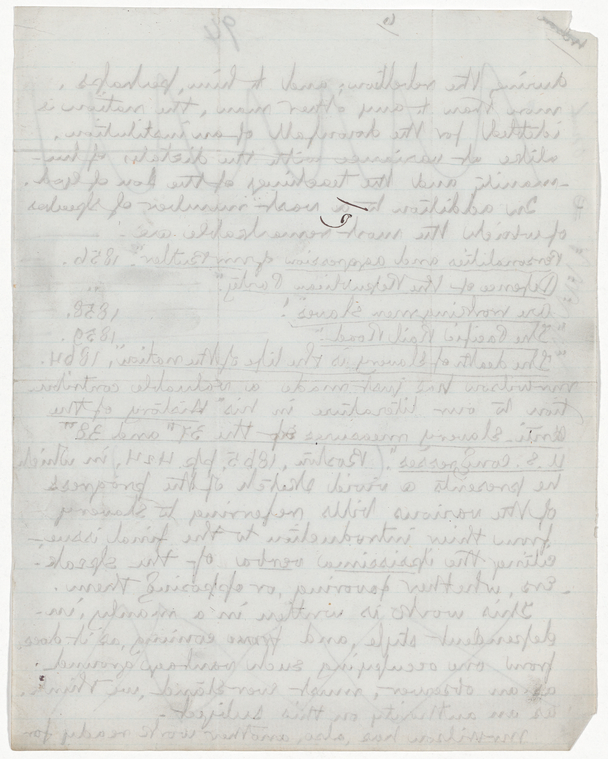 94
during the rebellion; and to him, perhaps,
more than to any other man, the nation is
indebted for the downfall of an institution,
alike at variance with the dictates of hu-
manity and the teachings of the Son of God.
In addition to a vast number of speeches
of which the most remarkable are:
Personalities and aggressions of Mr Butler". 1856.
Defence of the Republican Party". "
Are workingmen slaves"? 1858.
"The Pacific Rail Road". 1859.
"The death of slavery is the life of the nation", 1864.
Mr Wilson has just made a valuable contribu-
tion to our literature in his "History of the
Anti-Slavery measures of the 37th and 38th
U.S. Congresses". (Boston, 1865, pp. 424, in which
he presents a vivid sketch of the progress
of the various bills referring to slavery
from their introduction to the final issue,
citing the ipsissima verba of the speak-
ers, whether favoring or opposing them.
This work is written in a manly, in-
dependent style, and coming, as it does,
from one occupying such vantage ground
as an observer, must ever stand, we think,
as an authority on this subject.
Mr Wilson has, also, another work ready for